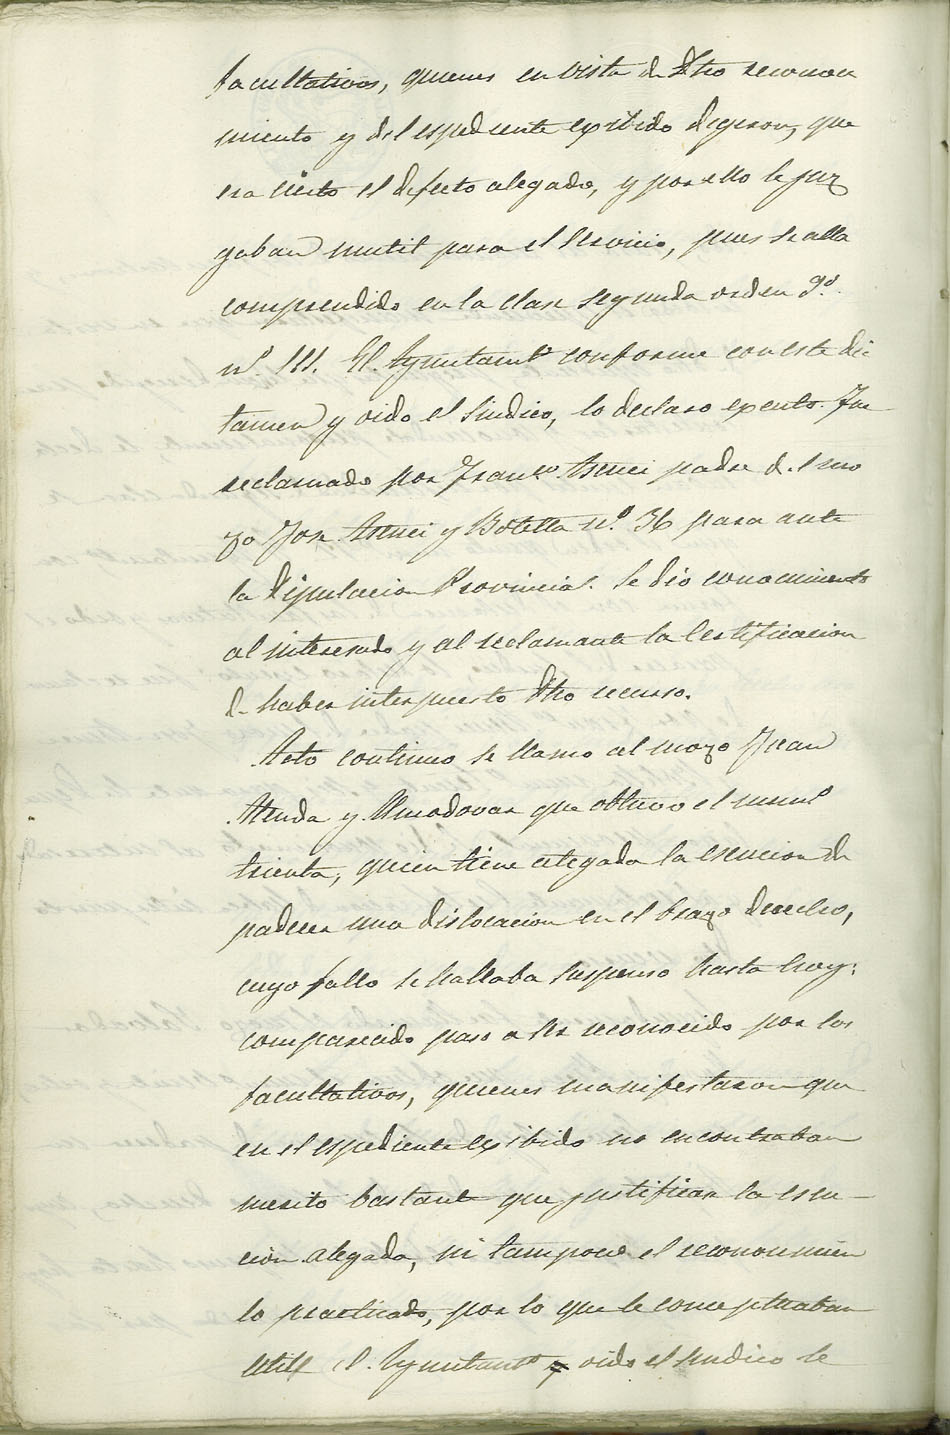 facultativos, quienes en vista de Dho reconoci
miento y del espediente exibido digeron, que
era cierto el defecto alegado, y por ello le juz
gaban inutil para el servicio, pues se alla
comprendido en la clase segunda orden 9º.
nº. 111. El Ayuntamtº conforme con este dic
tamen y oido el Sindico, lo declaro exento. Fue
reclamado por Francº Asensi padre del mo
zo Jose Asensi y Botella nº. 36 para ante
la Diputacion Provincial. Se dio conocimiento
al interesado y al reclamante la Certificacion
de haber interpuesto Dho recurso.
Acto continuo se llamo al mozo Juan
y Almodovar que obtuvo el numº
treinta, quien tiene alegada la esencion de
padecer una dislocacion en el brazo derecho,
cuyo fallo se hallaba suspenso hasta hoy:
comparecido paso a ser reconocido por los
facultativos, quienes manifestaron que
en el espediente exibido no encontraban
merito bastante que justificase la esen-
cion alegada, ni tampoco el reconocimien
to practicado, por lo que le conceptuaban
util El Ayuntamtº y oido el Sindico le